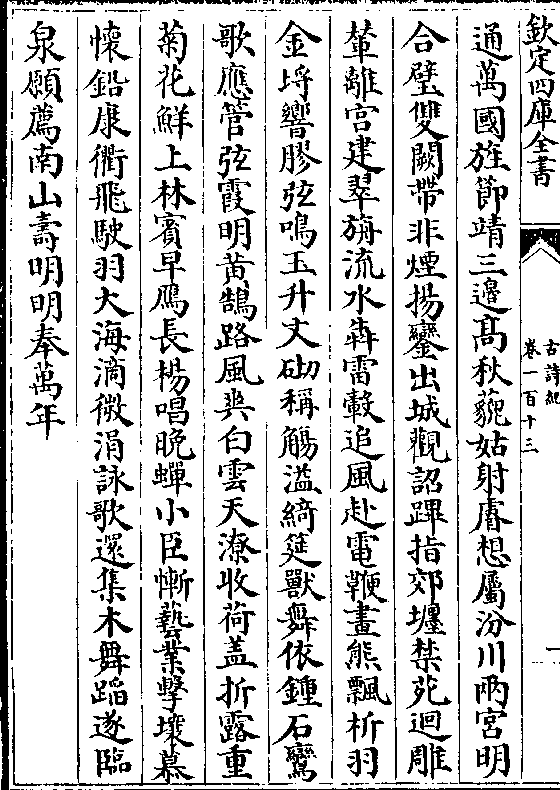 欽定四庫全書
古詩紀
卷一百十三
通萬國旌節靖三邊髙秋藐姑射睿想屬汾川兩宫明
合璧雙闕帶非煙揚鑾出城觀詔蹕指郊壥禁苑迴雕
輦離宫建翠旃流水犇雷轂追風赴電鞭畫熊飄析羽
金埓響膠弦鳴玉升文砌稱觴溢綺筵獸舞依鍾石鸞
歌應管弦霞明黄鵠路風爽白雲天潦收荷盖折露重
菊花鮮上林賓早鴈長楊唱晩蟬小臣慚藝業擊壤慕
懷鉛康衢飛駛羽大海滴微涓詠歌還集木舞蹈遂臨
泉願薦南山壽明明奉萬年